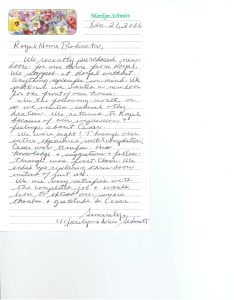 Marilyn Schmitt
Dec. 21, 2006
Royal Home Products,
We recently purchased new
doors for our home from Royal.
We stopped at Royal without
anything specific in mind. We
just knew we wanted a new door
for the front of our house.
In the following month or
so we visited several other
dealers. We returned to Royal
because of our impression &
feelings about Cesar.
We were right! Through our
entire experience, with completion,
Cesar was terrific. His
knowledge & suggestions & follow-
through were first class. We
ended up replacing three doors
instead of just one.
We are very satisfied with
the completed job & would
like to extend our sincere
thanks & gratitude to Cesar.
Sincerely,
Marilyn & Schmitt